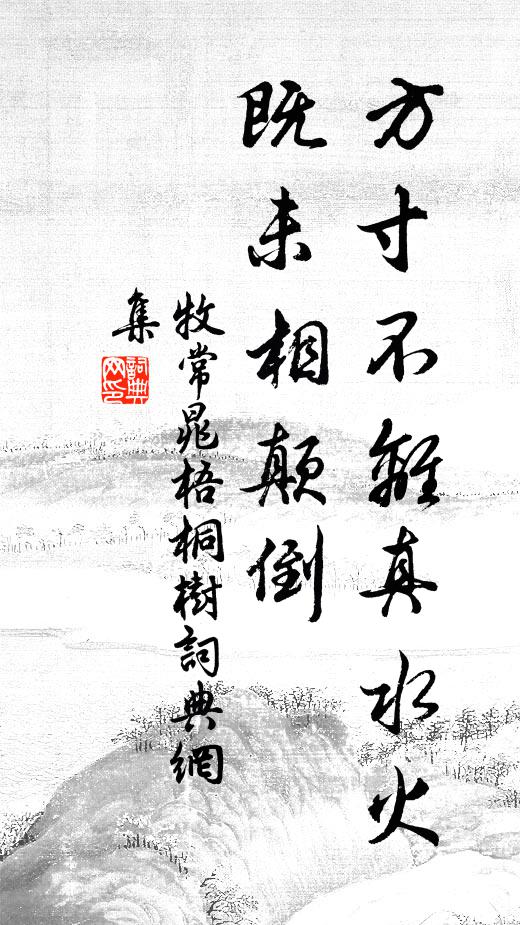 方寸不離真水火
既未相顛倒
牧常晁梧桐樹詞典網
集
詞典
网印